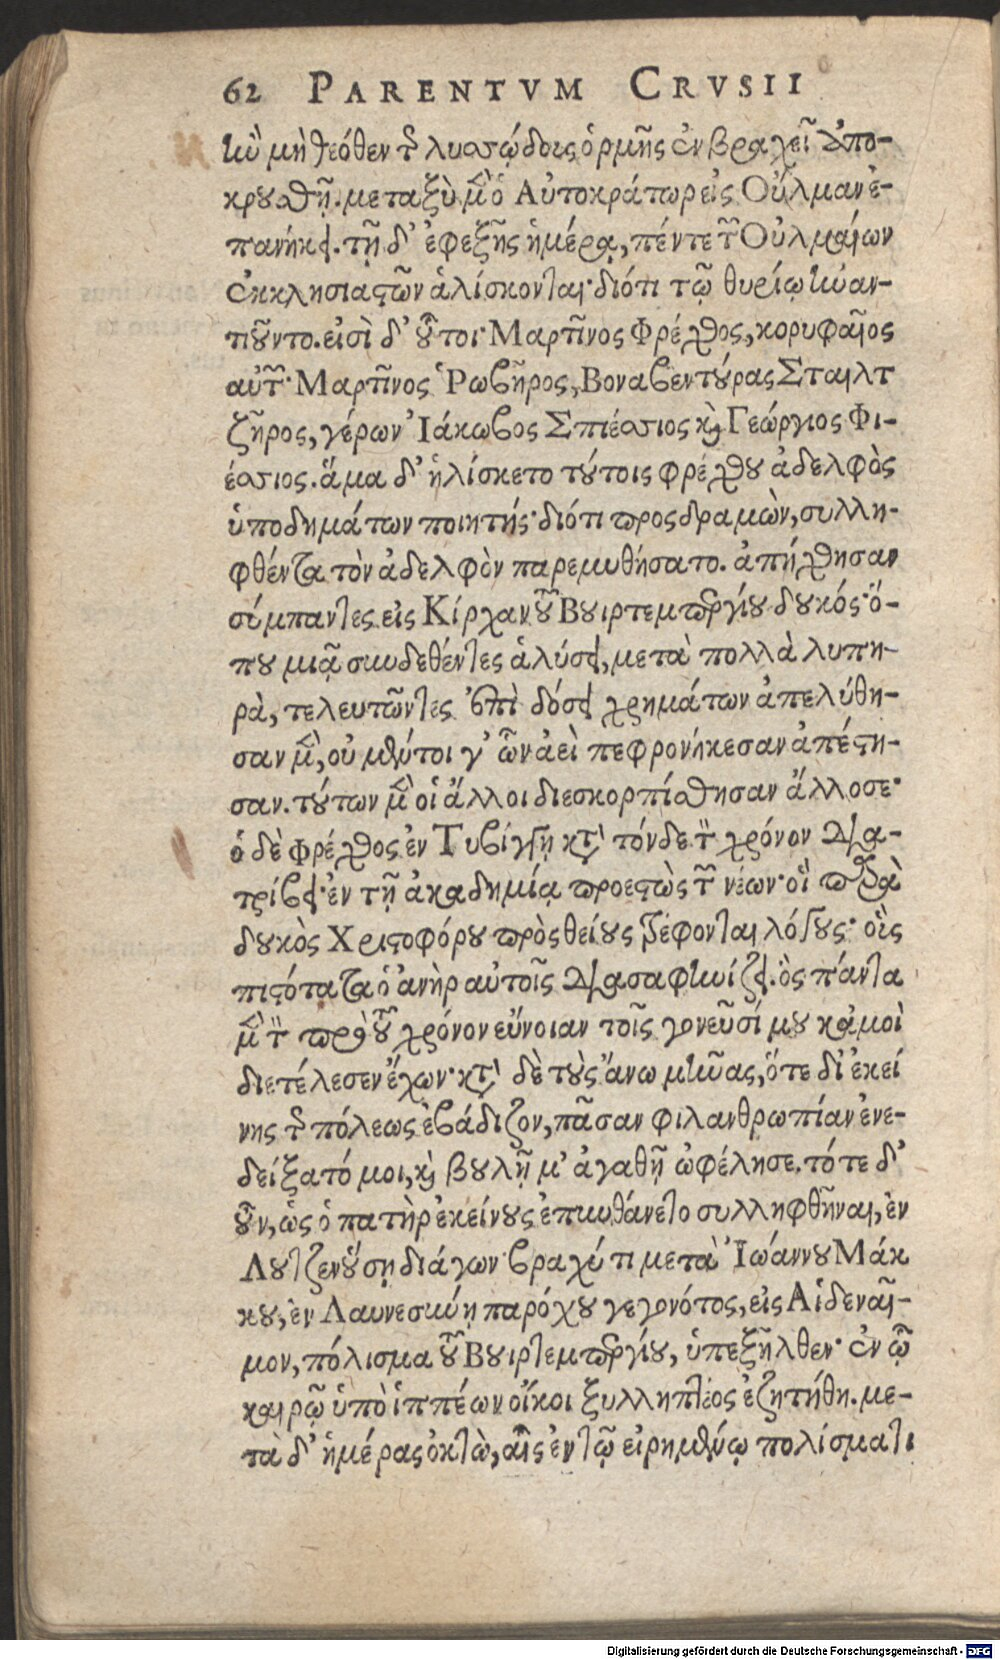 62 PARENTVM CRVSII
ἦν μὴ θεόθεν τῆς λυσσώδους ὁρμῆς ἐν βραχεῖ ἀπο-
κρουσθῇ. μεταξὺ μὲν ὁ Αὐτοκράτωρ εἰς Οὔλμαν ἐ-
πανήκει. τῇ δ' ἐφεξῆς ἡμέρᾳ, πέντε τῶν Οὐλμαίων
ἐκκλησιαστῶν ἁλίσκονται· διότι τῷ θηρίῳ ἠναν-
τιοῦντο. εἰσὶ δ' οὗτοι· Μαρτῖνος Φρέχθος, κορυφαῖος
αὐτῶν· Μαρτῖνος Ῥωβῆρος, Βοναβεντούρας Σταιλτ
ζῆρος, γέρων Ἰάκωβος Σπιέσσιος καὶ Γεώργιος Φι-
έσσιος. ἅμα δ' ἡλίσκετο τούτοις φρέχθου ἀδελφὸς
ὑποδημάτων ποιητής· διότι προσδραμὼν, συλλη-
φθέντα τὸν ἀδελφὸν παρεμυθήσατο. ἀπήχθησαν
σύμπαντες εἰς Κίρχαν τοῦ Βουιρτεμπεργίου δουκός· ὅ-
που μιᾷ συνδεθέντες ἁλύσει, μετὰ πολλὰ λυπη-
ρὰ, τελευτῶντες ἐπὶ δόσει χρημάτων ἀπελύθη-
σαν μὲν, οὐ μέντοι γ' ὧν ἀεὶ πεφρονήκεσαν ἀπέστη-
σαν. τούτων μὲν οἱ ἄλλοι διεσκορπίσθησαν ἄλλοσε·
ὁ δὲ φρέχθος ἐν Τυβίγγῃ κατὰ τόνδε τὸν χρόνον δια-
τρίβει· ἐν τῇ ἀκαδημίᾳ προεστὼς τῶν νέων· οἳ παρὰ
δουκὸς Χριστοφόρου πρὸς θείους τρέφονται λόγους· οἷς
πιστότατα ὁ ἀνὴρ αὐτοῖς διασαφηνίζει. ὃς πάντα
μὲν τὸν πρὸ τοῦ χρόνον εὔνοιαν τοῖς γονεῦσί μου κἀμοὶ
διετέλεσεν ἔχων· κατὰ δὲ τοὺς ἄνω μῆνας, ὅτε δι' ἐκεί
νης τῆς πόλεως ἐβάδιζον, πᾶσαν φιλανθρωπίαν ἐνε-
δείξατό μοι, καὶ βουλῇ μ' ἀγαθῇ ὠφέλησε. τότε δ'
οὖν, ὡς ὁ πατὴρ ἐκείνους ἐπυνθάνετο συλληφθῆναι, ἐν
Λουτζενούσῃ διάγων βραχύ τι μετὰ Ἰωάννου Μάκ
κου, ἐν Λαυνεσκύῃ παρόχου γεγονότος, εἰς Αἱδεναῖ-
μον, πόλισμα τοῦ Βουιρτεμπεργίου, ὑπεξῆλθεν· ἐν ᾧ
καιρῷ ὑπὸ ἱππέων οἴκοι ξυλληπτέος ἐζητήθη. με-
τὰ δ' ἡμέρας ὀκτὼ, αἷς ἐν τῷ εἰρημένῳ πολίσματι
Digitalisierung gefördert durch die Deutsche Forschungsgemeinschaft - DFG